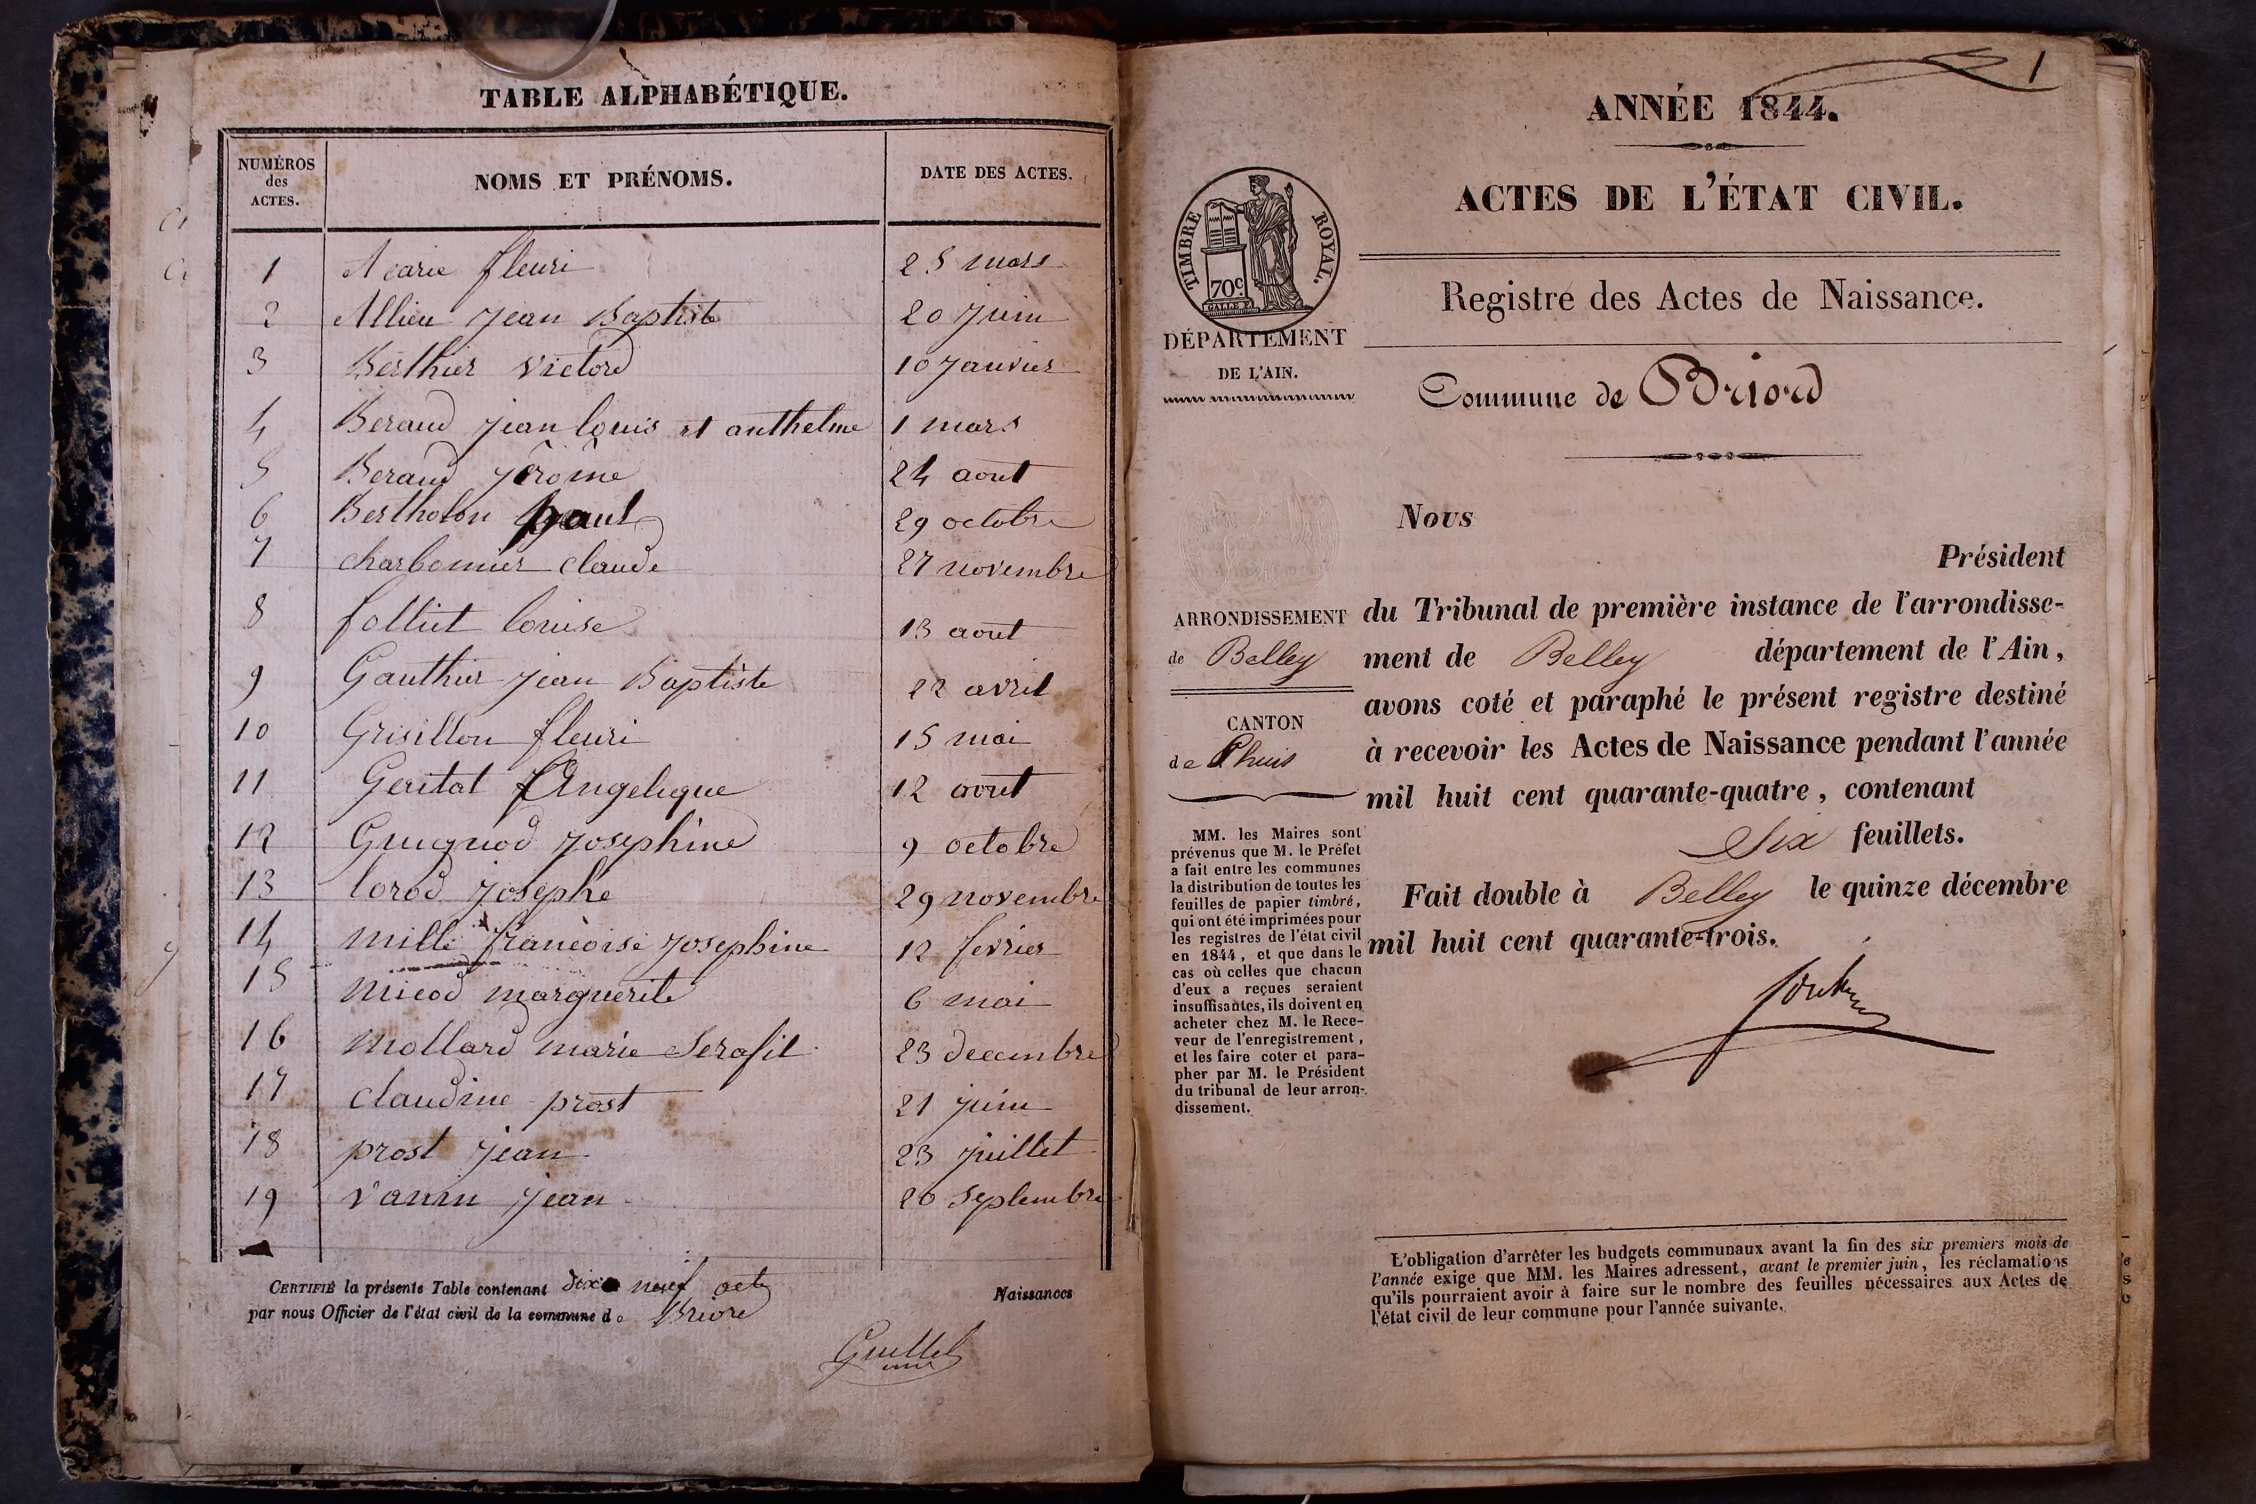 TABLE ALPHABÉTIQUE.
NUMÉROS des ACTES.
NOMS ET PRÉNOMS.
DATE DES ACTES.
1 Acarie fleuri 25 mars
2 Allieu Jean Baptiste 20 Juin
3 Berthier victord 10 Janvier
4 Beraud jean louis et anthelme 1 mars
5 Beraud Jérome 24 aout
6 Bertholon paul 29 octobre
7 charbonnier claude 27 novembre
8 folliet louise 13 aout
9 Gauthier Jean Baptiste 22 avril
10 Grisillon fleuri 15 mai
11 Angelique 12 aout
12 Guignod Josephine 9 octobre
13 lorod Josephe 29 novembre
14 mille francoise Josephine 12 fevrier
15 micod marguerite 6 mai
16 mollard marie Serafil 23 decembre
17 claudine prost 21 juin
18 prost Jean 23 juillet
19 vanin Jean 26 septembre
CERTIFIÉ la présente Table contenant dix neuf acte Naissances
par nous Officier de l'état civil de la commune de Briord
1
ANNÉE 1844.
ACTES DE L'ÉTAT CIVIL.
TIMBRE ROYAL.
70c.
Registre des Actes de Naissance.
DÉPARTEMENT
DE L'AIN.
Commune de Briord
Nous
Président
ARRONDISSEMENT
de Belley
CANTON
de Lhuis
du Tribunal de première instance de l'arrondisse-
ment de Belley département de l'Ain,
avons coté et paraphé le présent registre destiné
à recevoir les Actes de Naissance pendant l'année
mil huit cent quarante-quatre, contenant
Six feuillets.
Fait double à Belley le quinze décembre
mil huit cent quarante-trois.
MM. les Maires sont
prévenus que M. le Préfet
a fait entre les communes
la distribution de toutes les
feuilles de papier timbré,
qui ont été imprimées pour
les registres de l'état civil
en 1844, et que dans le
cas où celles que chacun
d'eux a reçues seraient
insuffisantes, ils doivent en
acheter chez M. le Rece-
veur de l'enregistrement,
et les faire coter et para-
pher par M. le Président
du tribunal de leur arron-
dissement.
L'obligation d'arrêter les budgets communaux avant la fin des six premiers mois de
l'année exige que MM. les Maires adressent, avant le premier juin, les réclamations
qu'ils pourraient avoir à faire sur le nombre des feuilles nécessaires aux Actes de
l'état civil de leur commune pour l'année suivante.